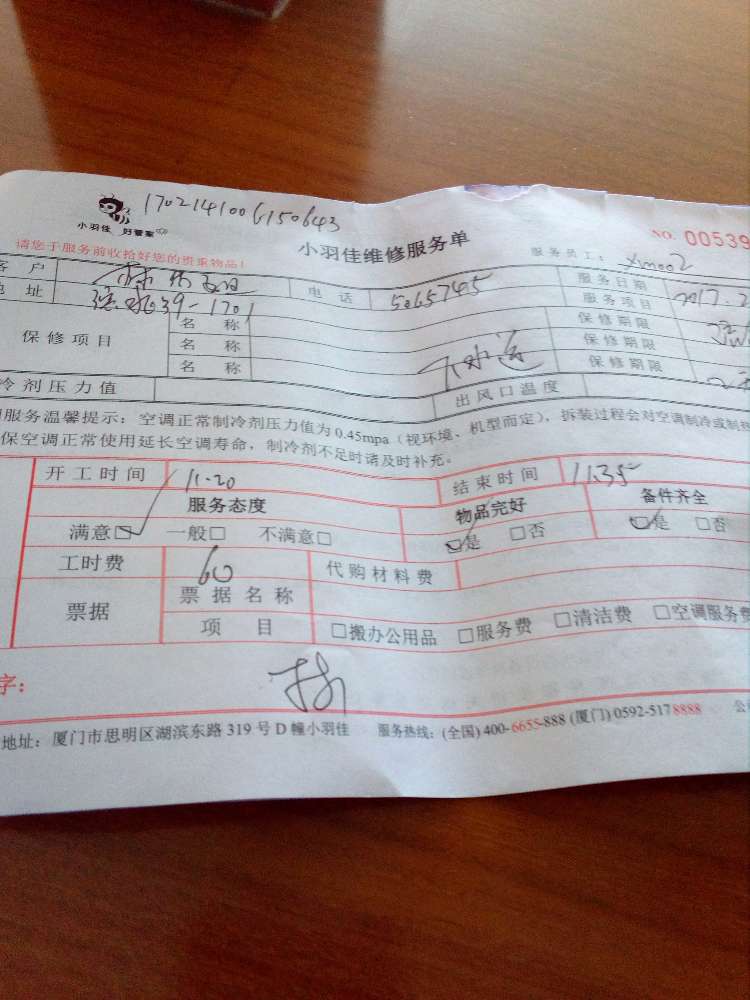 1702141006150643
小羽佳 好管家
小羽佳维修服务单
NO. 00539
请您于服务前收拾好您的贵重物品!
服务员工: xm002
客 户 林 电 话 5065745 服务日期 2017.2
地 址 39-1701 服务项目
保修项目 名 称 保修期限
名 称 保修期限
名 称 下水道 保修期限
冷剂压力值 出风口温度
服务温馨提示:空调正常制冷剂压力值为0.45mpa(视环境、机型而定),拆装过程会对空调制冷或制热
保空调正常使用延长空调寿命,制冷剂不足时请及时补充。
开工时间 11.20 结束时间 11.35
服务态度 物品完好 备件齐全
满意□ 一般□ 不满意□ □是 □否 □是 □否
工时费 60 代购材料费
票据 票据名称
项 目 □搬办公用品 □服务费 □清洁费 □空调服务费
字: 林
地址:厦门市思明区湖滨东路319号D幢小羽佳 服务热线:(全国)400-6655-888 (厦门)0592-5178888